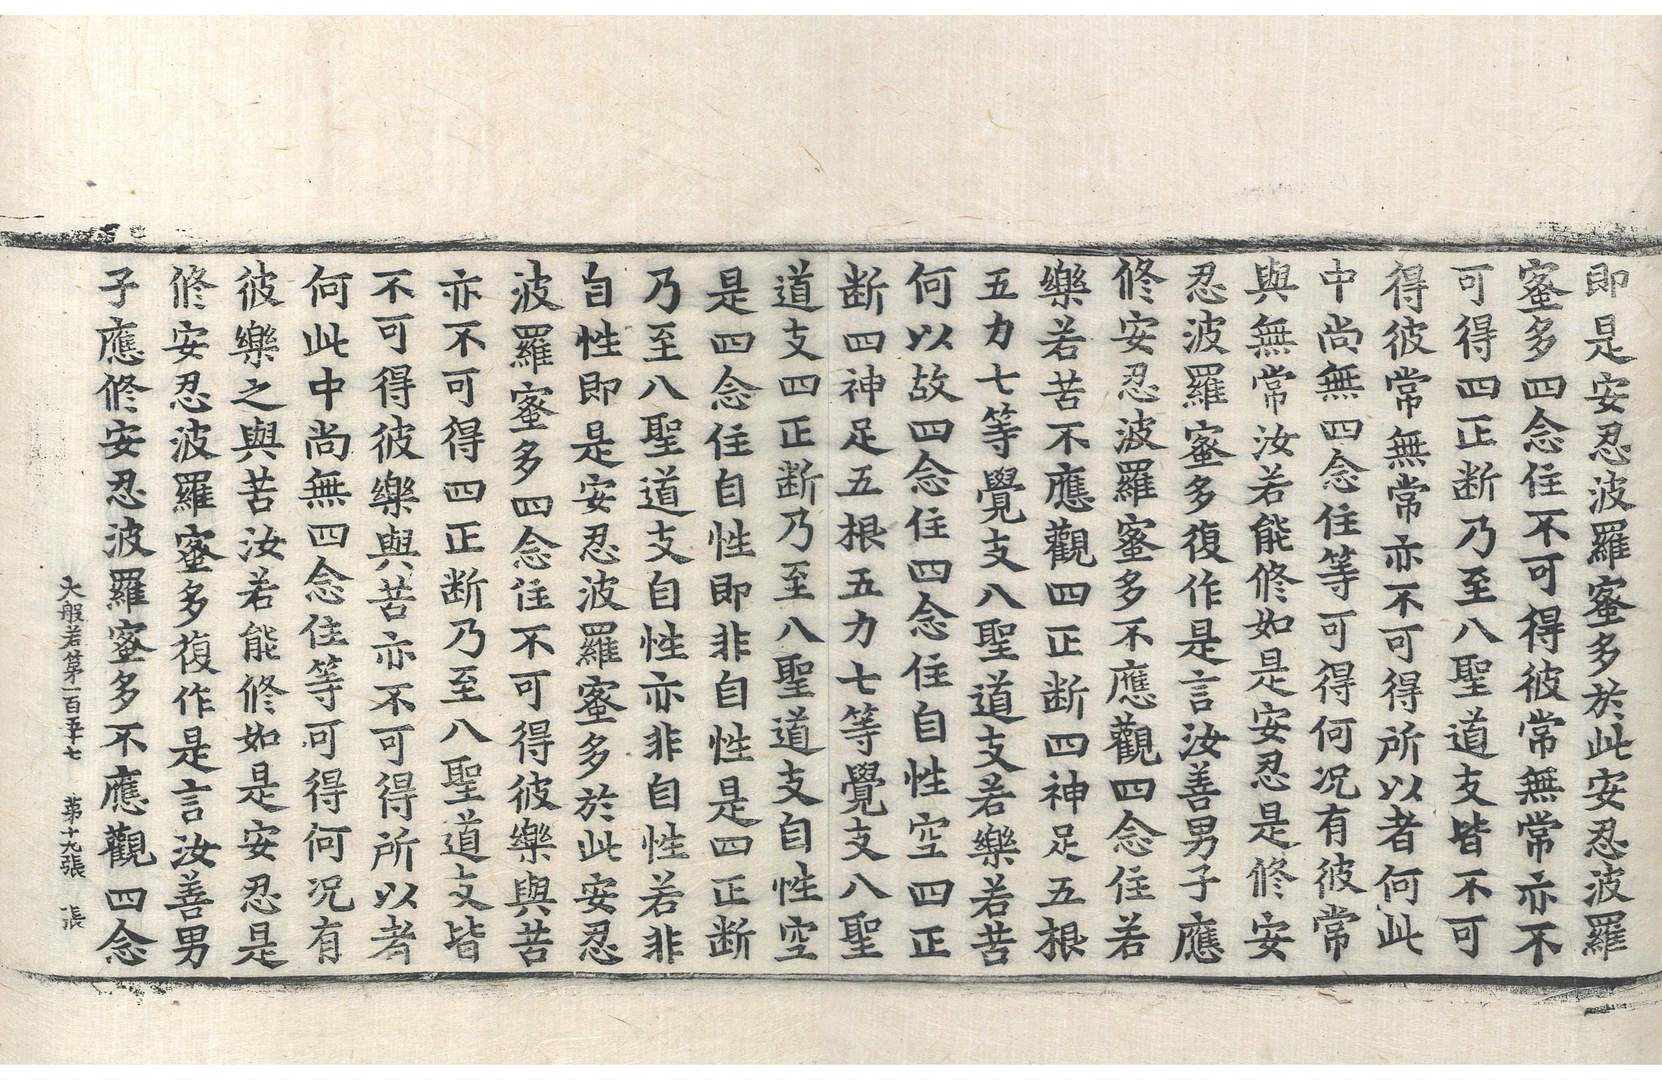 即是安忍波羅蜜多於此安忍波羅
蜜多四念住不可得彼常無常亦不
可得四正断乃至八聖道支皆不可
得彼常無常亦不可得所以者何此
中尚無四念住等可得何況有彼常
與無常汝若能修如是安忍是修安
忍波羅蜜多復作是言汝善男子應
修安忍波羅蜜多不應觀四念住若
樂若苦不應觀四正断四神足五根
五力七等覺支八聖道支若樂若苦
何以故四念住四念住自性空四正
断四神足五根五力七等覺支八聖
道支四正断乃至八聖道支自性空
是四念住自性即非自性是四正断
乃至八聖道支自性亦非自性若非
自性即是安忍波羅蜜多於此安忍
波羅蜜多四念住不可得彼樂與苦
亦不可得四正断乃至八聖道支皆
不可得彼樂與苦亦不可得所以者
何此中尚無四念住等可得何況有
彼樂之與苦汝若能修如是安忍是
修安忍波羅蜜多復作是言汝善男
子應修安忍波羅蜜多不應觀四念
大般若第一百五十七 第十九張 張